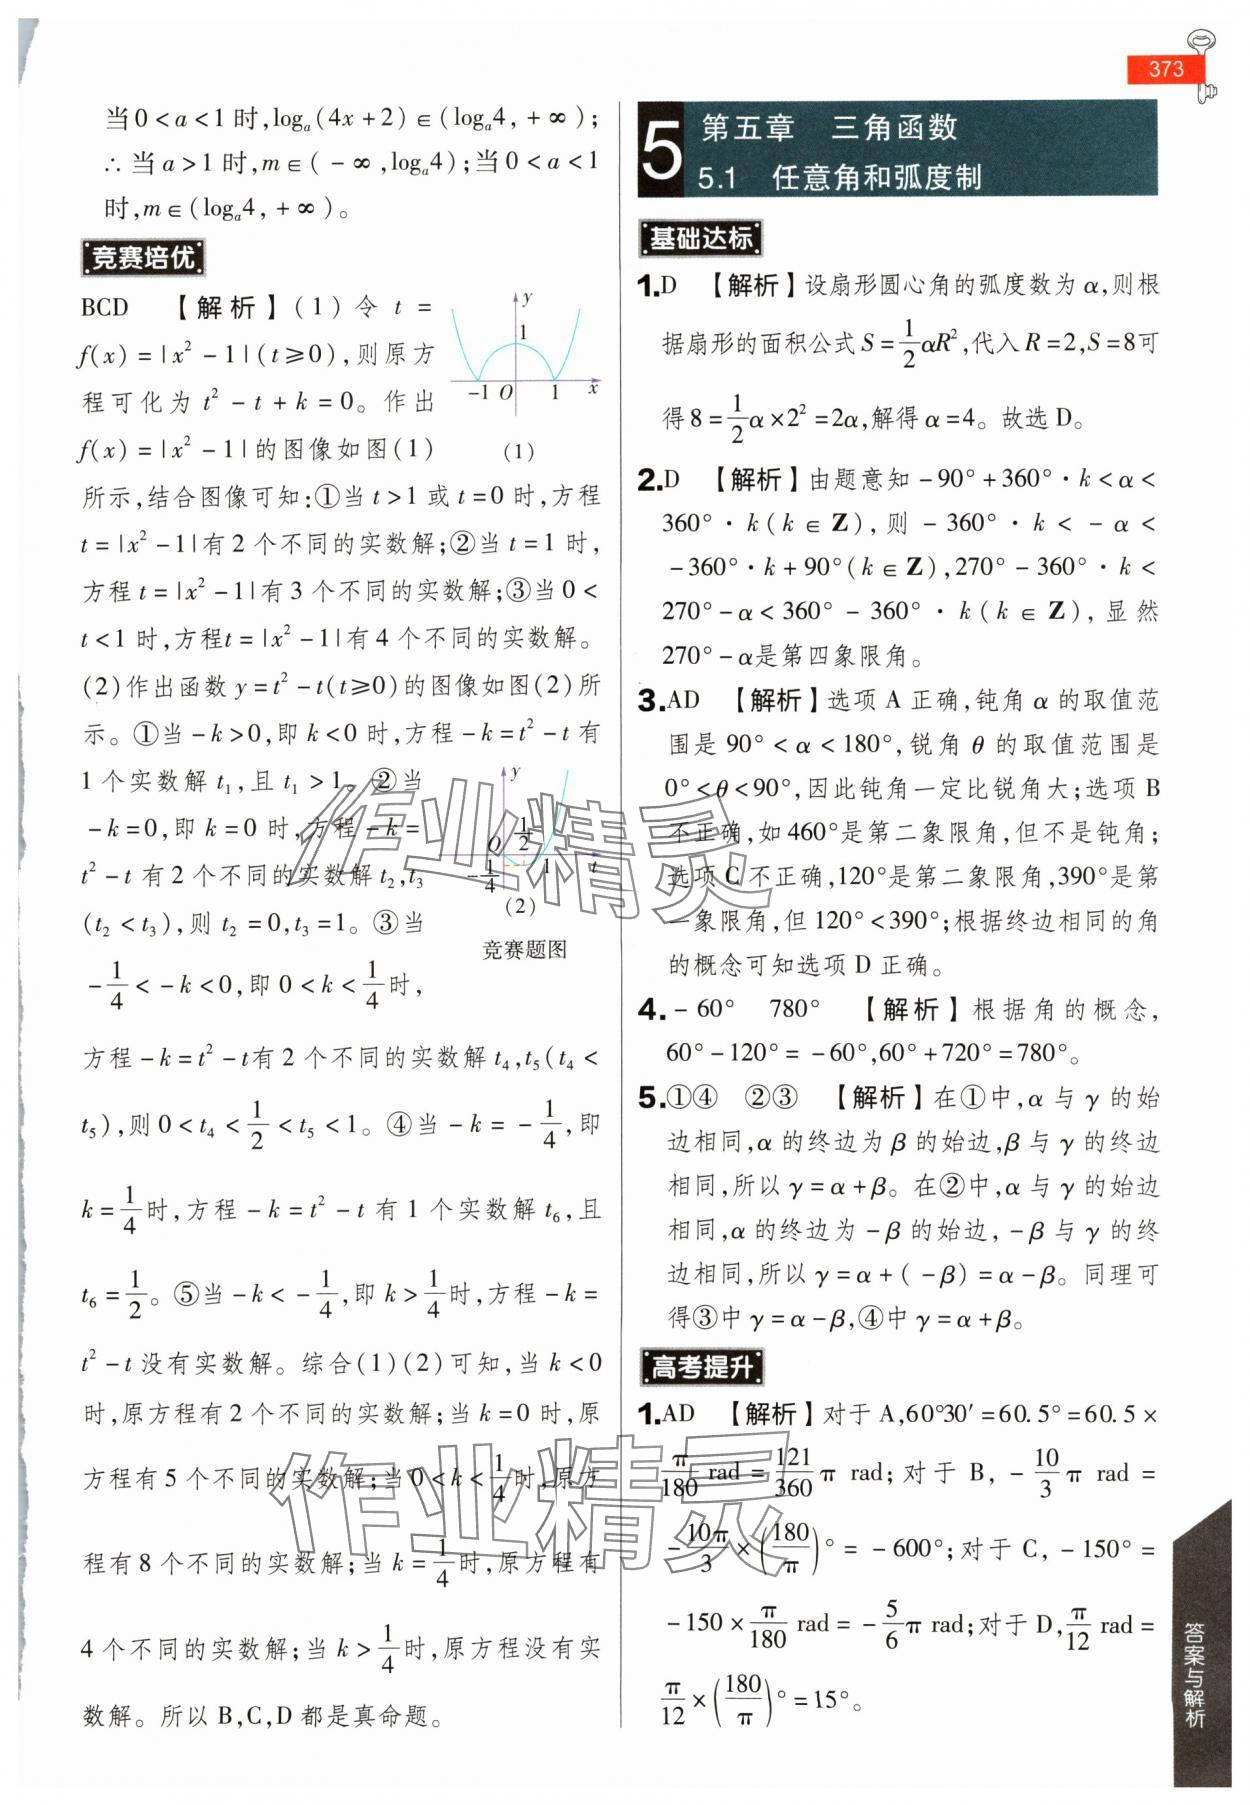 373
当0<a<1时,logₐ(4x+2)∈(logₐ4,+∞);
∴当a>1时,m∈(-∞,logₐ4);当0<a<1
时,m∈(logₐ4,+∞)。
竞赛培优
BCD 【解析】(1)令 t=
f(x)=|x²-1|(t≥0),则原方
程可化为 t²-t+k=0。作出
f(x)=|x²-1|的图像如图(1)
y
1
-1 O 1 x
(1)
所示,结合图像可知:①当t>1或t=0时,方程
t=|x²-1|有2个不同的实数解;②当t=1时,
方程t=|x²-1|有3个不同的实数解;③当0<
t<1时,方程t=|x²-1|有4个不同的实数解。
(2)作出函数y=t²-t(t≥0)的图像如图(2)所
示。①当-k>0,即k<0时,方程-k=t²-t有
1个实数解t₁,且t₁>1。②当
-k=0,即k=0时,方程-k=
t²-t有2个不同的实数解t₂,t₃
(t₂<t₃),则t₂=0,t₃=1。③当
-1/4<-k<0,即0<k<1/4时,
y
O 1/2 1 t
-1/4
(2)
竞赛题图
方程-k=t²-t有2个不同的实数解t₄,t₅(t₄<
t₅),则0<t₄<1/2<t₅<1。④当-k=-1/4,即
k=1/4时,方程-k=t²-t有1个实数解t₆,且
t₆=1/2。⑤当-k<-1/4,即k>1/4时,方程-k=
t²-t没有实数解。综合(1)(2)可知,当k<0
时,原方程有2个不同的实数解;当k=0时,原
方程有5个不同的实数解;当0<k<1/4时,原方
程有8个不同的实数解;当k=1/4时,原方程有
4个不同的实数解;当k>1/4时,原方程没有实
数解。所以B,C,D都是真命题。
5 第五章 三角函数
5.1 任意角和弧度制
基础达标
1.D 【解析】设扇形圆心角的弧度数为α,则根
据扇形的面积公式S=1/2αR²,代入R=2,S=8可
得8=1/2α×2²=2α,解得α=4。故选D。
2.D 【解析】由题意知-90°+360°·k<α<
360°·k(k∈Z),则-360°·k<-α<
-360°·k+90°(k∈Z),270°-360°·k<
270°-α<360°-360°·k(k∈Z),显然
270°-α是第四象限角。
3.AD 【解析】选项A正确,钝角α的取值范
围是90°<α<180°,锐角θ的取值范围是
0°<θ<90°,因此钝角一定比锐角大;选项B
不正确,如460°是第二象限角,但不是钝角;
选项C不正确,120°是第二象限角,390°是第
一象限角,但120°<390°;根据终边相同的角
的概念可知选项D正确。
4.-60° 780° 【解析】根据角的概念,
60°-120°=-60°,60°+720°=780°。
5.①④ ②③ 【解析】在①中,α与γ的始
边相同,α的终边为β的始边,β与γ的终边
相同,所以γ=α+β。在②中,α与γ的始边
相同,α的终边为-β的始边,-β与γ的终
边相同,所以γ=α+(-β)=α-β。同理可
得③中γ=α-β,④中γ=α+β。
高考提升
1.AD 【解析】对于A,60°30′=60.5°=60.5×
π/180 rad=121/360π rad;对于B,-10/3π rad=
-10π/3×(180/π)°=-600°;对于C,-150°=
-150×π/180 rad=-5/6π rad;对于D,π/12 rad=
π/12×(180/π)°=15°。
答案与解析
作业精灵
作业精灵